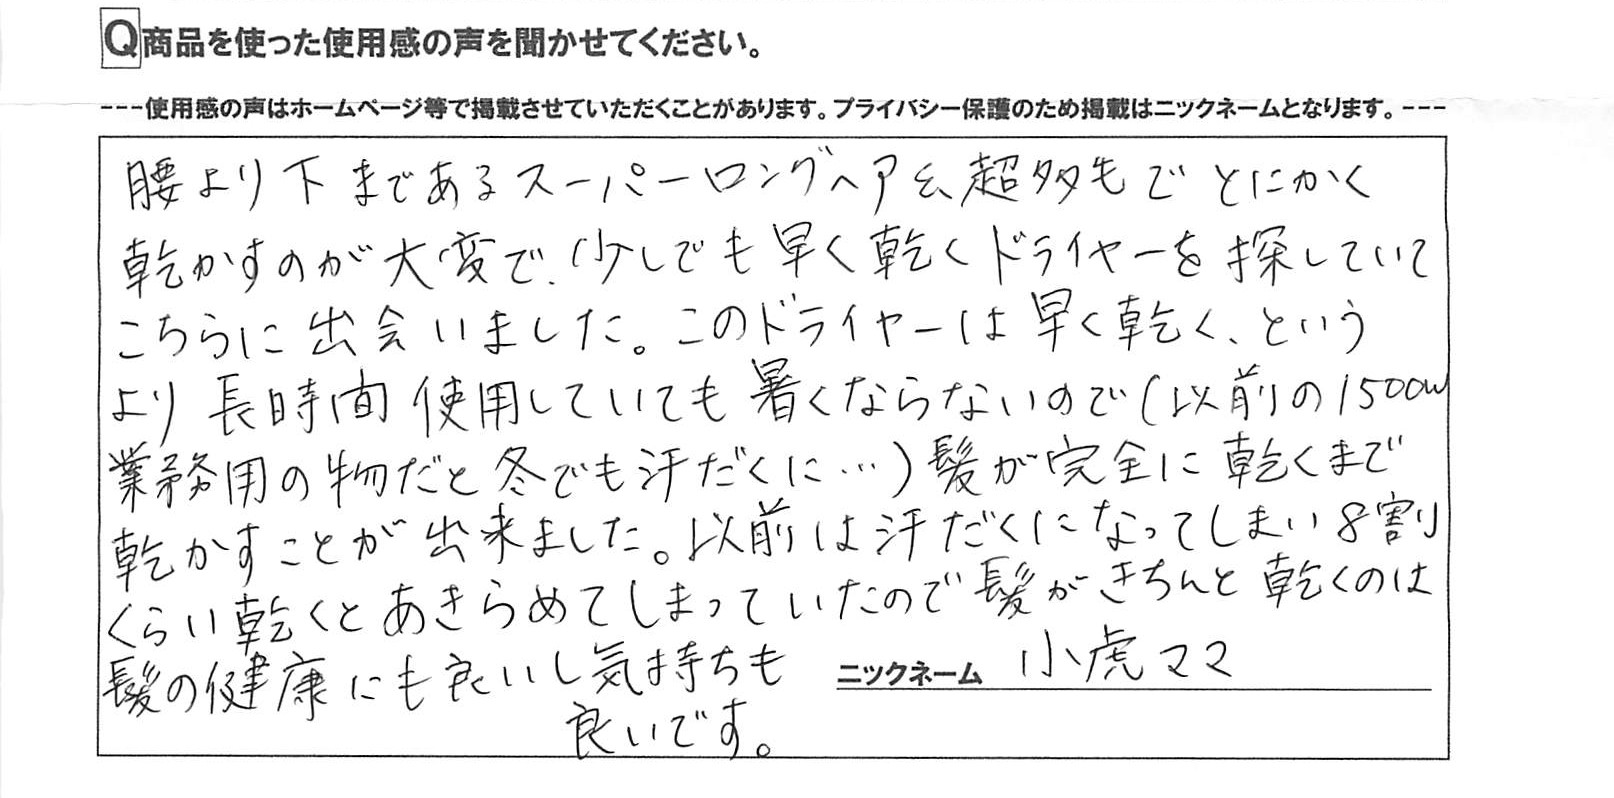 Q商品を使った使用感の声を聞かせてください。
---使用感の声はホームページ等で掲載させていただくことがあります。プライバシー保護のため掲載はニックネームとなります。---
腰より下まであるスーパーロングヘア&超多毛でとにかく
乾かすのが大変で、少しでも早く乾くドライヤーを探していて
こちらに出会いました。このドライヤーは早く乾く、という
より長時間使用していても暑くならないので(以前の1500w
業務用の物だと冬でも汗だくに…)髪が完全に乾くまで
乾かすことが出来ました。以前は汗だくになってしまい8割
くらい乾くとあきらめてしまっていたので髪がきちんと乾くのは
髪の健康にも良いし気持ちも
良いです。
ニックネーム 小虎ママ